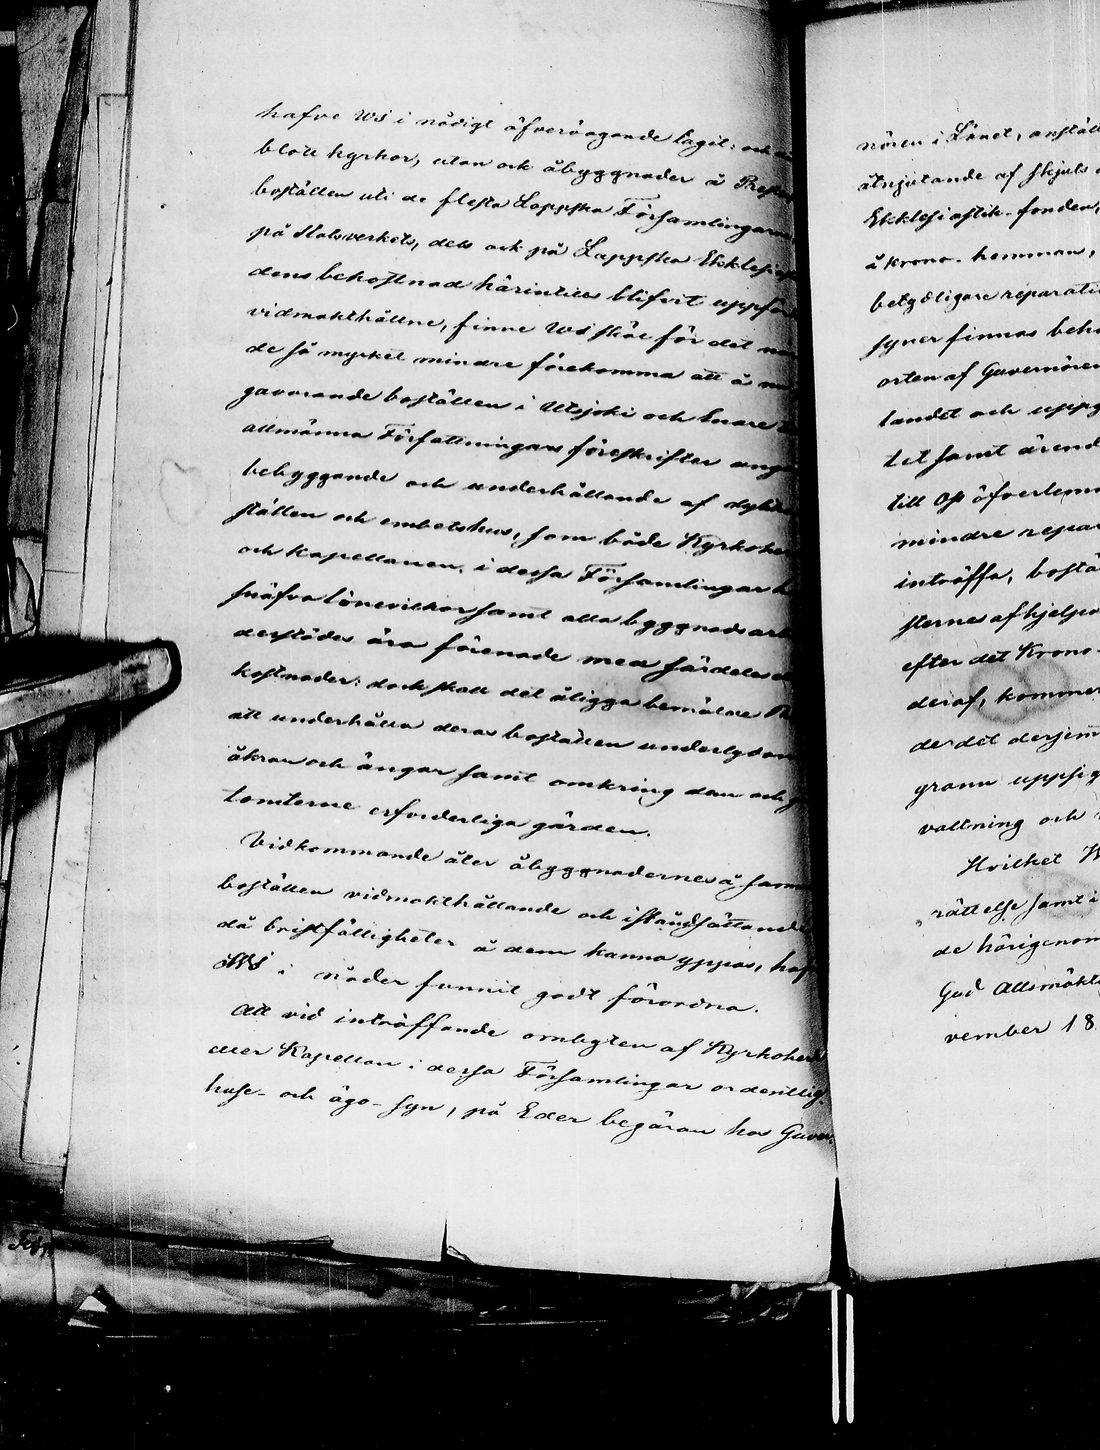 hafve WS i nådigt öfvervägande tagit: och
blott kyrkor, utan ock åbyggnader å Prest
boställen uti de flesta Lappska Församlingarna,
på Statsverkets, dels ock på Lappska Ecklesi
dens bekostnad härintills blifvit uppför
vidmakthållne, finne WS skäl för det
de så mycket mindre förekomma att å
gavarande boställen i Utsjoki och Enare
allmänna Författningars föreskrifter ang
bebyggande och underhållande af dylika
ställen och embetshus, som både Kyrkoher
och kapellanen i dessa Församlingar
snäfva lönevilkor samt alla byggnads arb
derstädes äro förenade med särdeles
kostnader: dock skall det åligga bemälde
att underhålla deras boställen underlydan
åkrar och ängar samt omkring dem och
tomterne erforderliga gärden.
Vidkommande åter åbyggnadernes å samm
boställen vidmakthållande och iståndsättande
då bristfälligheter å dem kunna yppas, haf
WS i nåder funnit godt förordna.
Att vid inträffande ombyten af Kyrkoherde
eller Kapellan i dessa Församlingar ordentlig
huse- och ägo-syn, på Eder begäran hos Guver-
nören i Länet, anställ
åtnjutande af skjuts
Ekklesiastik-fonden,
å krono-hemman,
betydligare reparati
syner finnas beho
orten af Guvernören
landet och uppg
tet samt ärend
till OSS öfverlemn
mindre repar
inträffa, bostä
sternes afhjelpa
efter det Krono-
deraf, kommer
de det derjem
grann uppsig
valtning och
Hvilket W
rättelse samt i
de härigenom
Gud Allsmäkti
vember 18